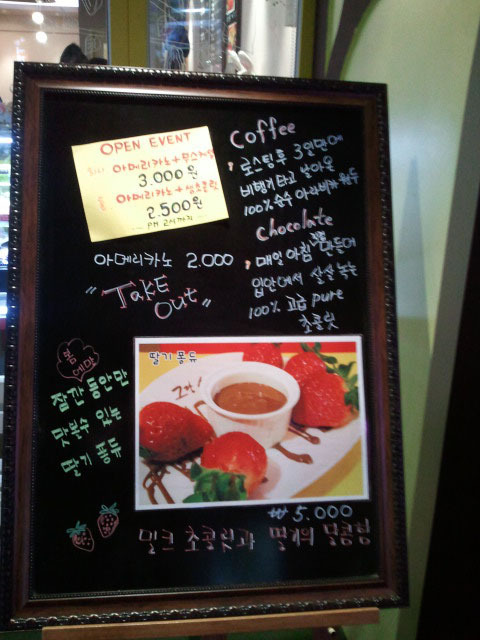 OPEN EVENT
아메리카노+무스케잌
3.000원
아메리카노+생초콜릿
2.500원
PM 2시까지
아메리카노 2.000
"TAKE
Out"
Coffee
로스팅후 3일만에
비행기타고 날아온
100% 순수 아라비카 원두
Chocolate
매일 아침 직접 만든
입안에서 살살 녹는
100% 고급 pure
초콜릿
봄
에만
잠깐 동안만
맛볼수 있는
딸기 퐁듀
딸기 퐁듀
₩ 5.000
밀크 초콜릿과 딸기의 달콤함